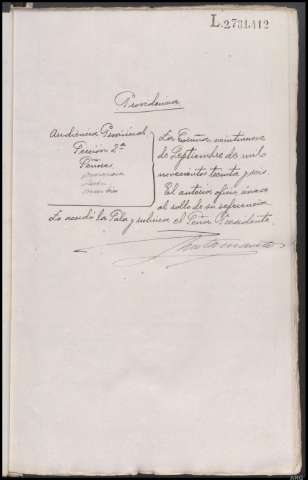 L.2781412
Providencia
Audiencia Provincial
Sección 2ª
Señores
La Coruña veintinueve
de Septiembre de mil
novecientos treinta y seis.
El anterior oficio únase
al rollo de su referencia
Lo acordó la Sala y rubrica el Señor Presidente.